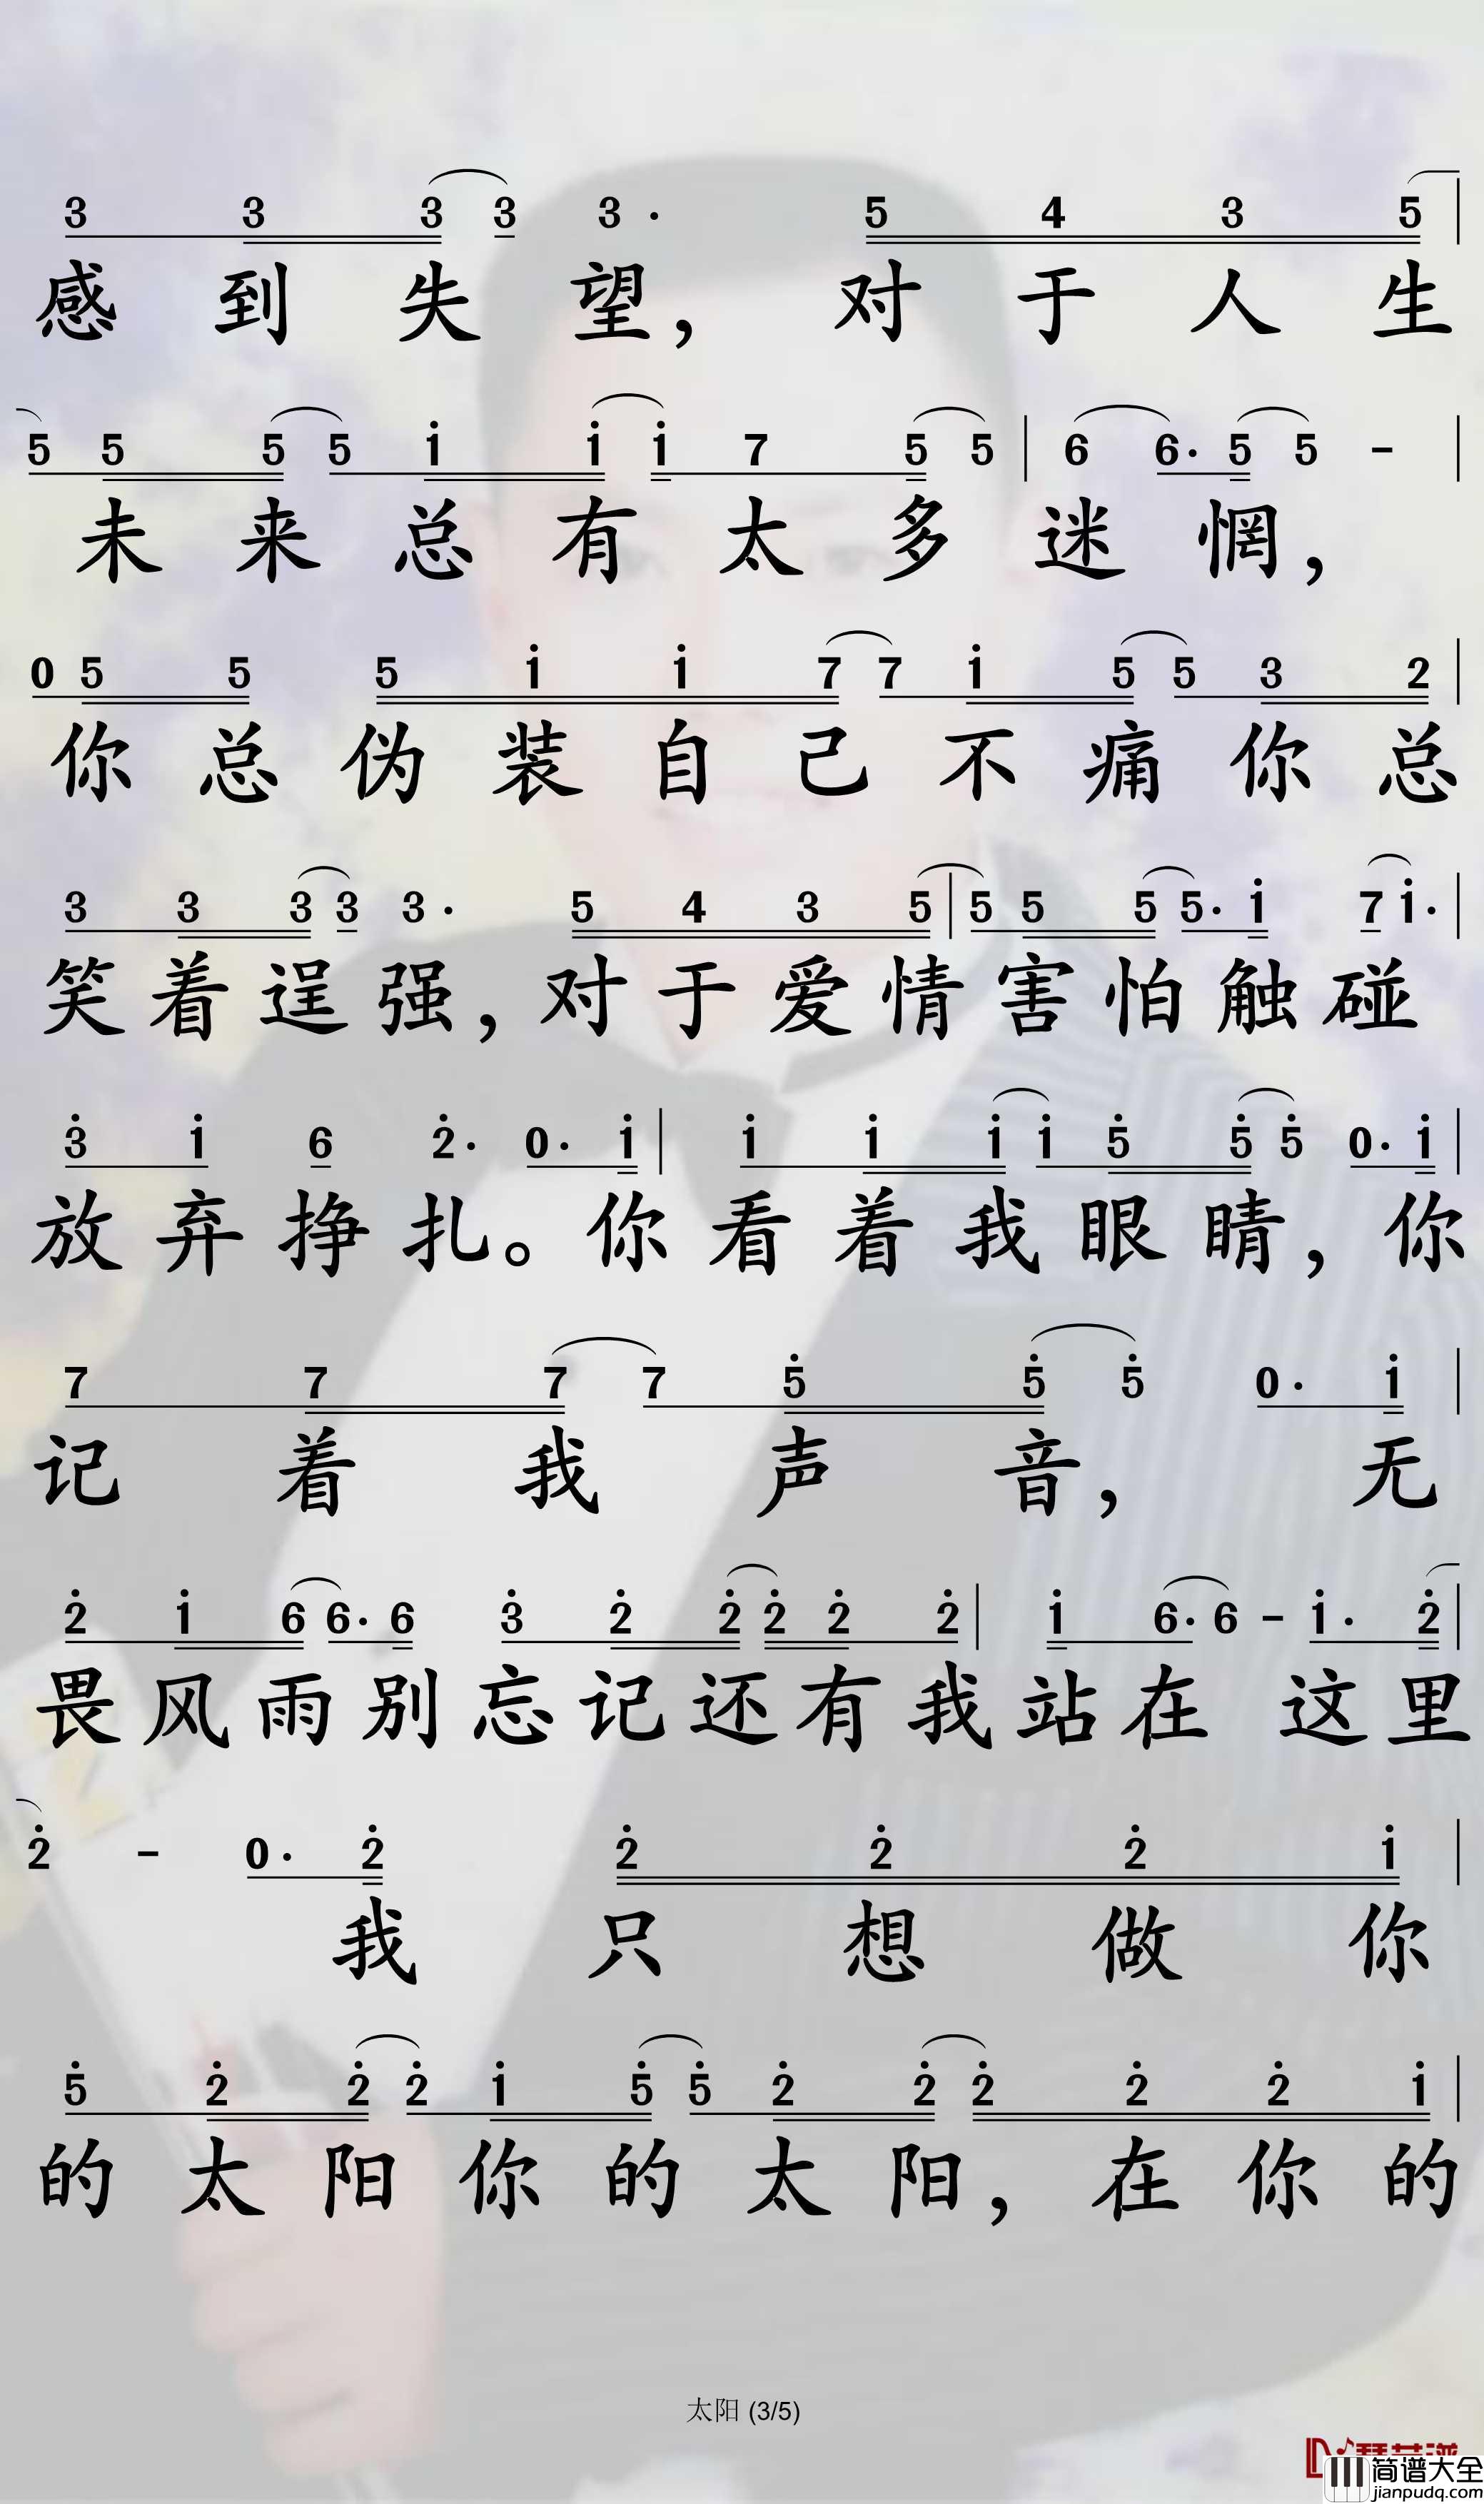 3 3 3 3 3 · 5 4 3 5
感到失望，对于人生
5 5 5 5 i i i 7 5 5 6 6 · 5 5 -
未来总有太多迷惘，
0 5 5 5 i i 7 7 i 5 5 3 2
你总伪装自己不痛你总
3 3 3 3 3 · 5 4 3 5 5 5 5 5 · i 7 i ·
笑着逞强，对于爱情害怕触碰
3 i 6 2 · 0 · i i i i i 5 5 5 0 · i
放弃挣扎。你看着我眼睛，你
7 7 7 7 5 5 5 0 · i
记着我声音，无
2 i 6 6 · 6 3 2 2 2 2 2 i 6 · 6 - i · 2
畏风雨别忘记还有我站在这里
2 - 0 · 2 2 2 2 i
我只想做你
5 2 2 2 i 5 5 2 2 2 2 2 i
的太阳你的太阳，在你的
太阳 (3/5)
简谱大全
jianpudq.com